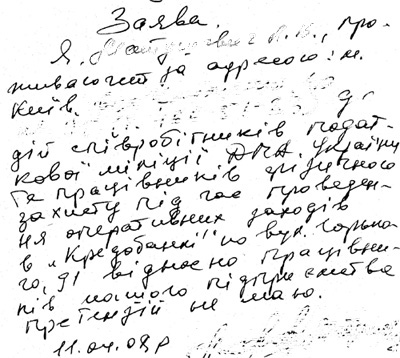 Заява.
Я, Матушевич А.В., про-
живаючий за адресою: м.
Київ.
до
дій співробітників подат-
кової міліції ДПА України
та працівників фізичного
захисту під час проведен-
ня оперативних заходів
в "Кредобанкі" по вул. Горько-
го, ді віднесено працівни-
ків нашого підприємства
претензій не маю.
11.04.08р